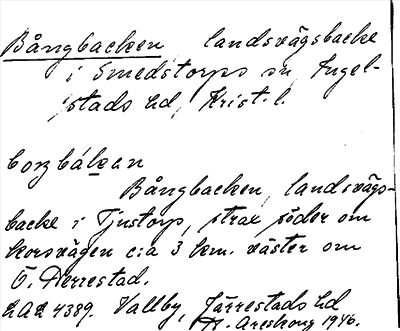 Bångbacken landsvägsbacke
i Smedstorps sn, Ingel-
stads hd, Krist. l.
Bångbacken, landsvägs-
backe i Tjustorp, strax söder om
korsvägen c:a 3 km. väster om
Ö. Herrestad.
LAL 4389. Vallby, Järrestads hd
Areskoug 1946.